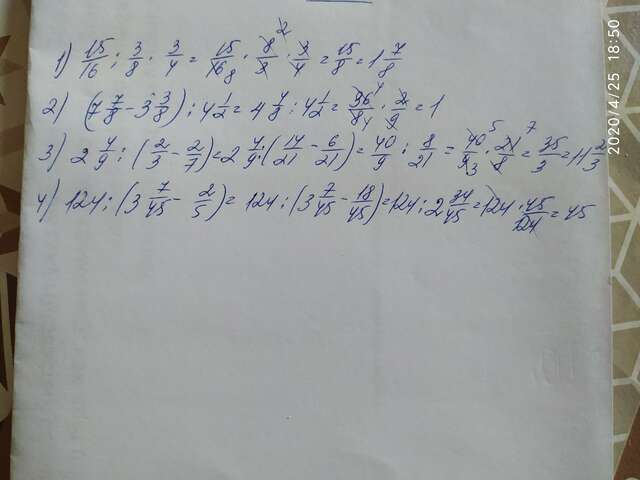 1) 15/16 : 3/8 · 3/4 = 15/16 8 · 8/3 2 · 3/4 = 15/8 = 1 7/8
2) (7 7/8 - 3 3/8) : 4 1/2 = 4 4/8 : 4 1/2 = 36/8 4 · 2/9 = 1
3) 2 4/9 : (2/3 - 2/7) = 2 4/9 : (14/21 - 6/21) = 40/9 : 8/21 = 40/9 5 3 · 21/8 7 = 35/3 = 11 2/3
4) 124 : (3 7/45 - 2/5) = 124 : (3 7/45 - 18/45) = 124 : 2 34/45 = 124 · 45/124 = 45
2020/4/25 18:50